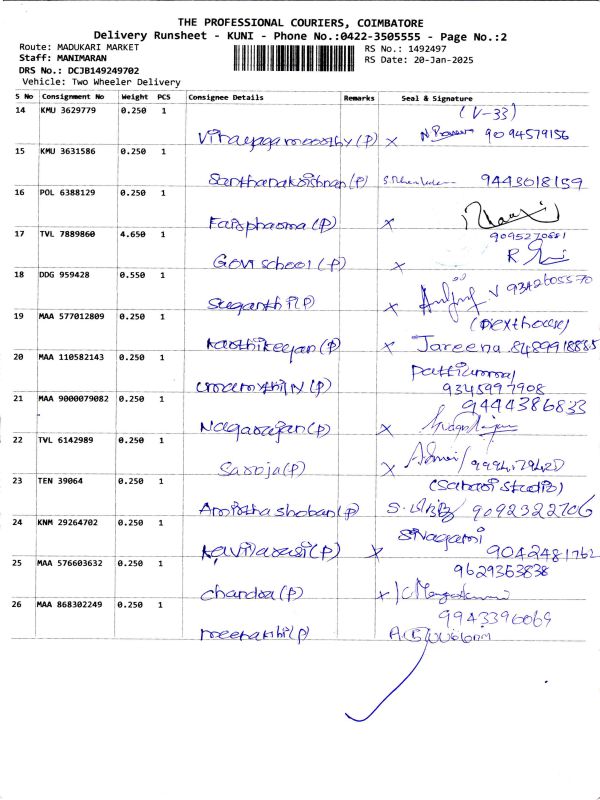 THE PROFESSIONAL COURIERS, COIMBATORE
Delivery Runsheet - KUNI - Phone No.:0422-3505555 - Page No.:2
Route: MADUKARI MARKET
RS No.: 1492497
Staff: MANIMARAN
RS Date: 20-Jan-2025
DRS No.: DCJB149249702
Vehicle: Two Wheeler Delivery
S No Consignment No Weight PCS Consignee Details Remarks Seal & Signature
14 KMU 3629779 0.250 1
(V-33)
Vinayagamoorthy (P) x 9094579156
15 KMU 3631586 0.250 1
Santhanakrishnan (P) 9443018159
16 POL 6388129 0.250 1
(P) x
17 TVL 7889860 4.650 1
9095270881
Govi school (P) x
18 DDG 959428 0.550 1
9342605570
Suganthi (P) x
19 MAA 577012809 0.250 1
(next house)
Karthikeyan (P) x Jareena 8489918885
20 MAA 110582143 0.250 1
(P) 9345997908
21 MAA 9000079082 0.250 1
9444386833
Nagarajan (P) x
22 TVL 6142989 0.250 1
Saroja (P) x
23 TEN 39064 0.250 1
Amirtha shoban (P) 9092322706
24 KNM 29264702 0.250 1
Sivagami
Kavilarasi (P) x 9042481762
25 MAA 576603632 0.250 1
9629353838
Chandra (P) x
26 MAA 868302249 0.250 1
9943396069
meenakhi (P)